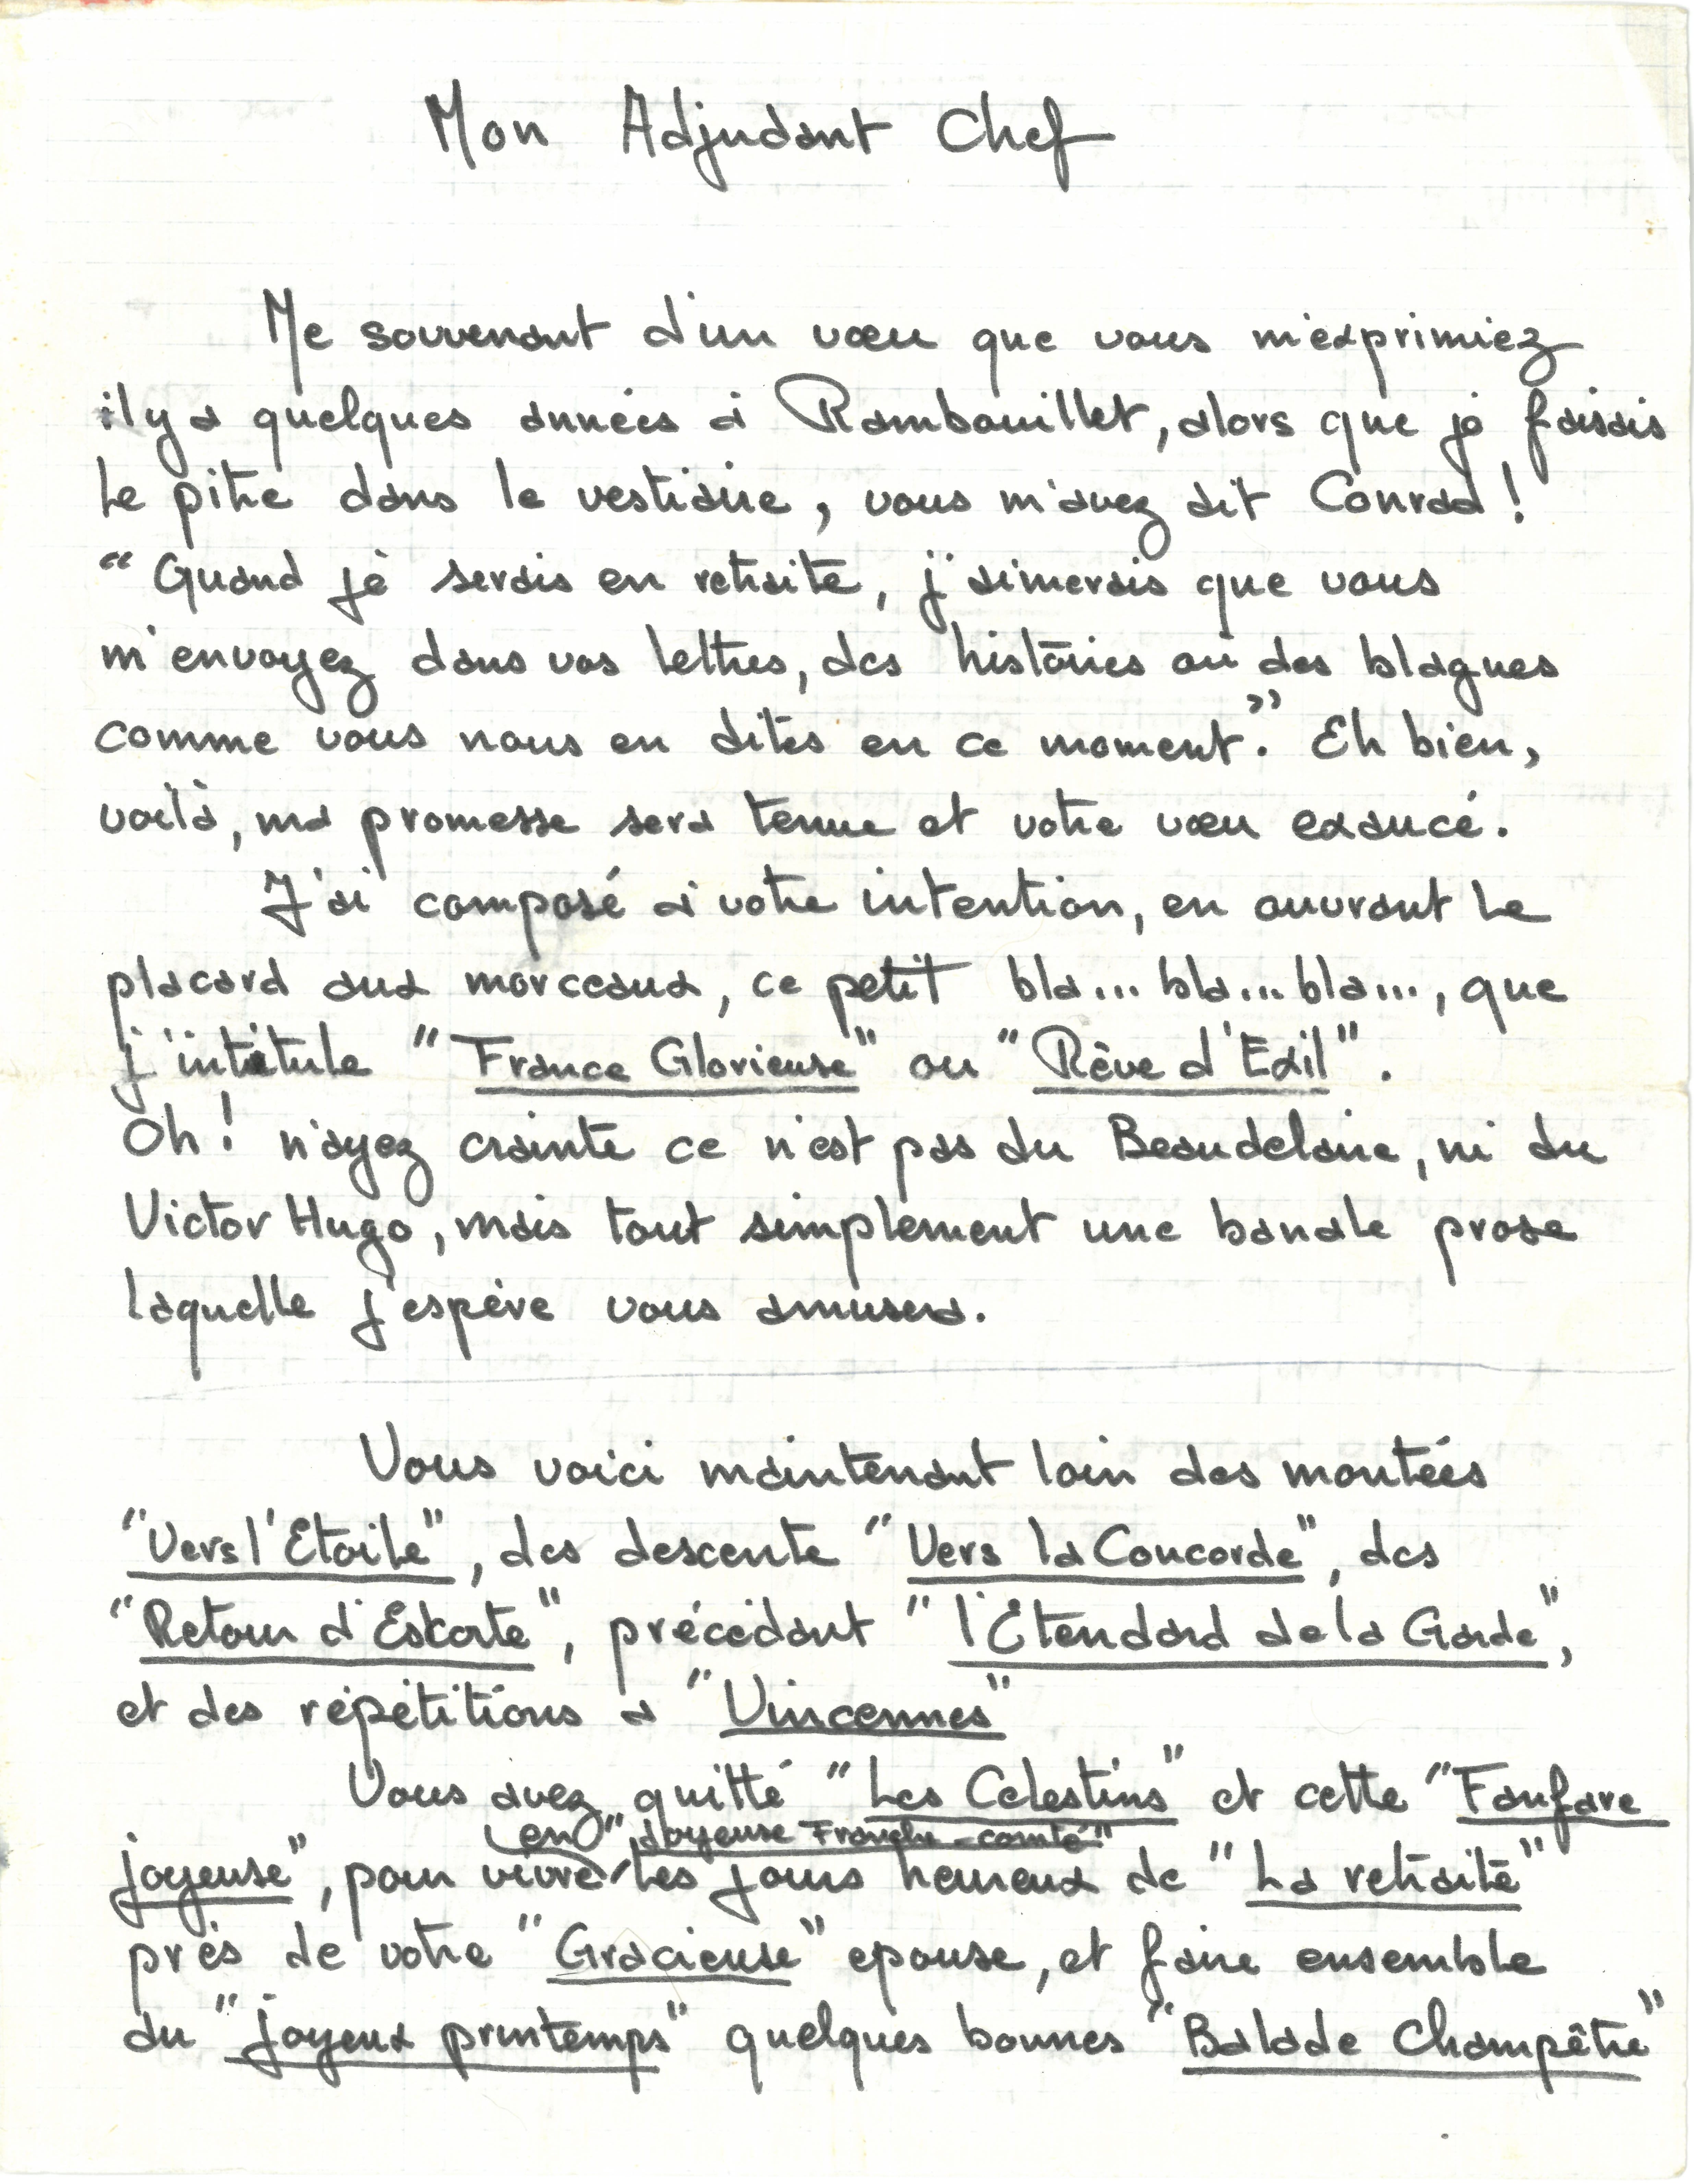 Mon Adjudant Chef
Me souvenant d'un vœu que vous m'exprimiez
il y a quelques années à Rambouillet, alors que je faisais
le pitre dans le vestiaire, vous m'avez dit Conrad !
"Quand je serais en retraite, j'aimerais que vous
m'envoyez dans vos lettres, des histoires ou des blagues
comme vous nous en dites en ce moment." Eh bien,
voilà, ma promesse sera tenue et votre vœu exaucé.
J'ai composé à votre intention, en ouvrant le
placard aux morceaux, ce petit bla... bla... bla..., que
j'intitule "France Glorieuse" ou "Rêve d'Exil".
Oh ! n'ayez crainte ce n'est pas du Beaudelaire, ni du
Victor Hugo, mais tout simplement une banale prose
laquelle j'espère vous amusera.
Vous voici maintenant loin des montées
"Vers l'Etoile", des descente "Vers la Concorde", des
"Retour d'Eskorte", précédant "l'Etendard de la Garde",
et des répétitions à "Vincennes"
Vous avez quitté "Les Celestins" et cette "Fanfare
en "Joyeuse Franche-comté"
joyeuse", pour vivre les jours heureux de "La retraite"
près de votre "Gracieuse" epouse, et faire ensemble
du "joyeux printemps" quelques bonnes "Balade Champêtre"